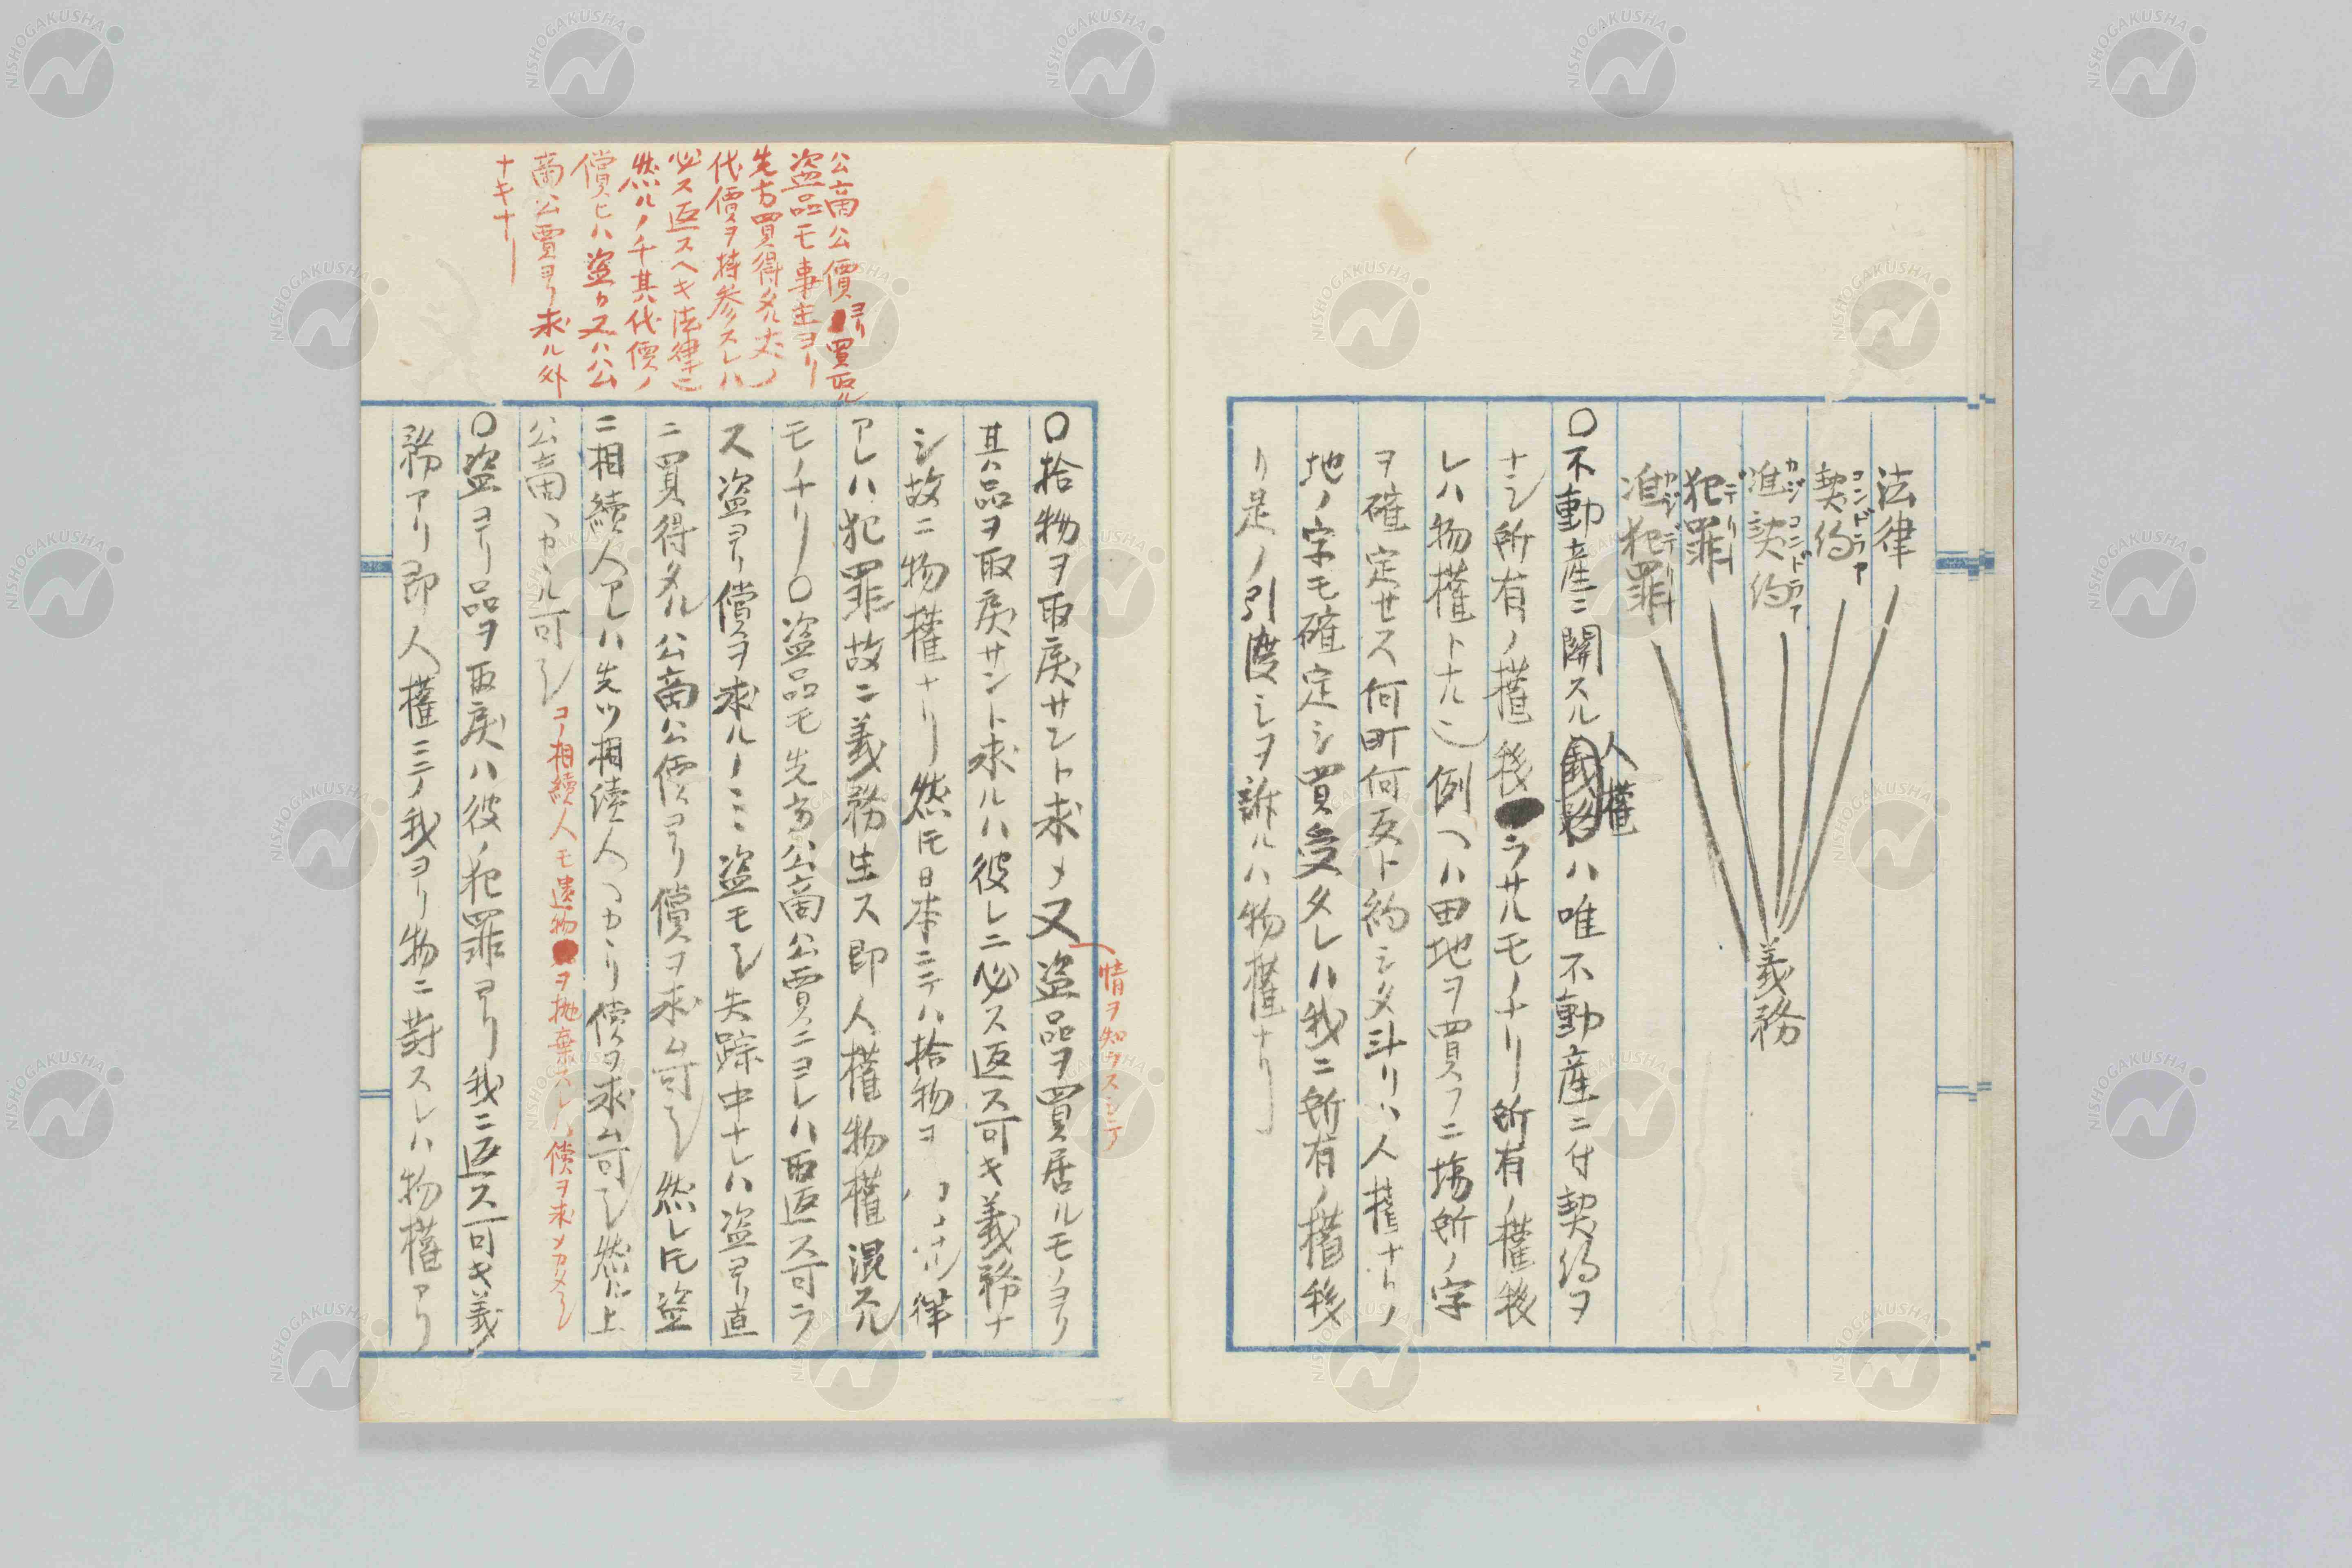 法律
契約 コンドラア
准契約 カジコンドラア
犯罪 デリー
准犯罪 カジデリー
義務
〇不動産ニ関スル人権ハ唯不動産ニ付契約ヲ
ナシ所有ノ権移ラサルモノナリ所有ノ権移
レハ物権トナル例ヘハ田地ヲ買フニ場所ノ字
ヲ確定セス何町何反ト約シタ斗リハ人権ナリ
地ノ字モ確定シ買受タレハ我ニ所有ノ権移
リ足ノ引渡シヲ訴ルハ物権ナリ
〇拾物ヲ取戻サント求メ又盗品ヲ買居ルモノヨリ
情ヲ知ラスシテ
其品ヲ取戻サント求ルハ彼レニ必ス返ス可キ義務ナ
シ故ニ物権ナリ然トモ日本ニテハ拾物ヲ 律
アレハ犯罪故ニ義務生ス即人権物権混
モノナリ〇盗品モ先方公商公買ニヨレハ取返ス可ラ
ス盗ヨリ償ヲ求ルノミ盗モシ失踪中ナレハ盗ヨリ直
ニ買得タル公商公價ヨリ償ヲ求ム可シ然レトモ盗
ニ相続人アレハ先ツ相続人ヘカヽリ償ヲ求ム可シ然ル上
公商ヘカヽル可シ
コノ相続人モ遺物ヲ抛棄スレハ償ヲ求メカタシ
〇盗ヨリ品ヲ取戻ハ彼ノ犯罪ヨリ我ニ返ス可キ義
務アリ即人権ニテ我ヨリ物ニ対スレハ物権アリ
公商公價ヨリ買取ル
盗品モ事主ヨリ
先方買得タル丈ノ
代價ヲ持参スレハ
必ス返スヘキ法律ニ
然ルノチ其代價ノ
償ヒハ盗カ又ハ公
商公買ヨリ求ル外
ナキナリ
NISHOGAKUSHA